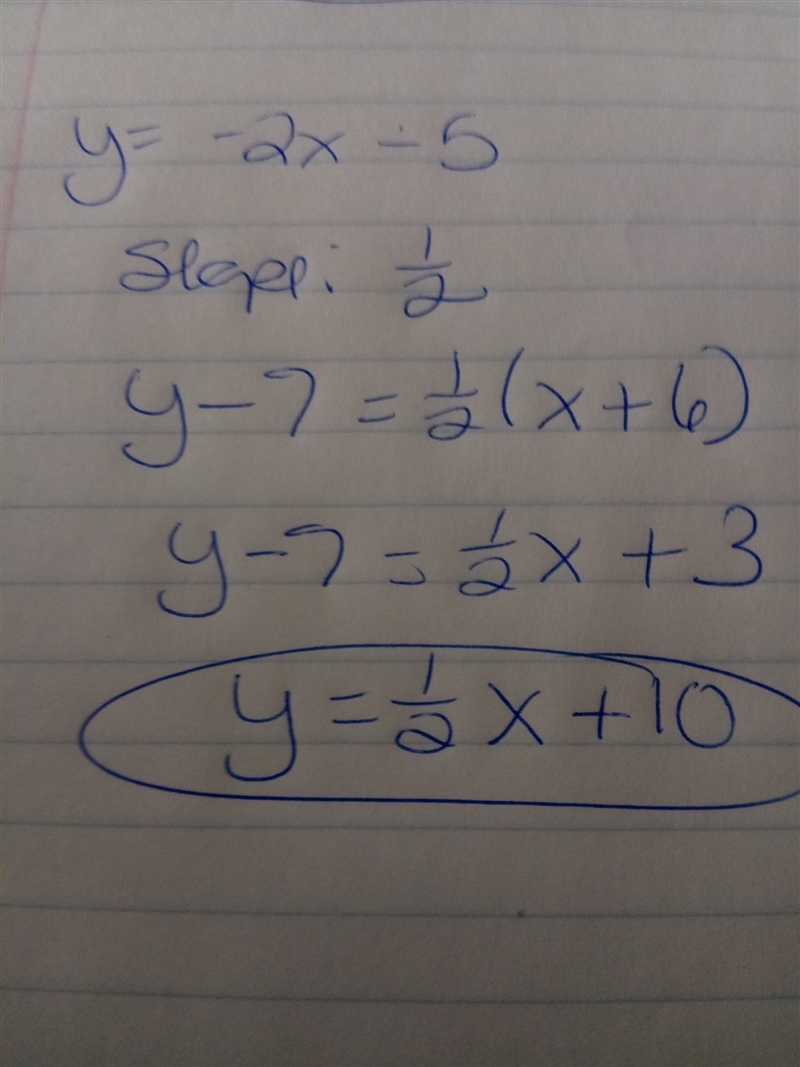 y = -2x - 5
Slope: 1/2
y - 7 = 1/2 (x + 6)
y - 7 = 1/2 x + 3
y = 1/2 x + 10